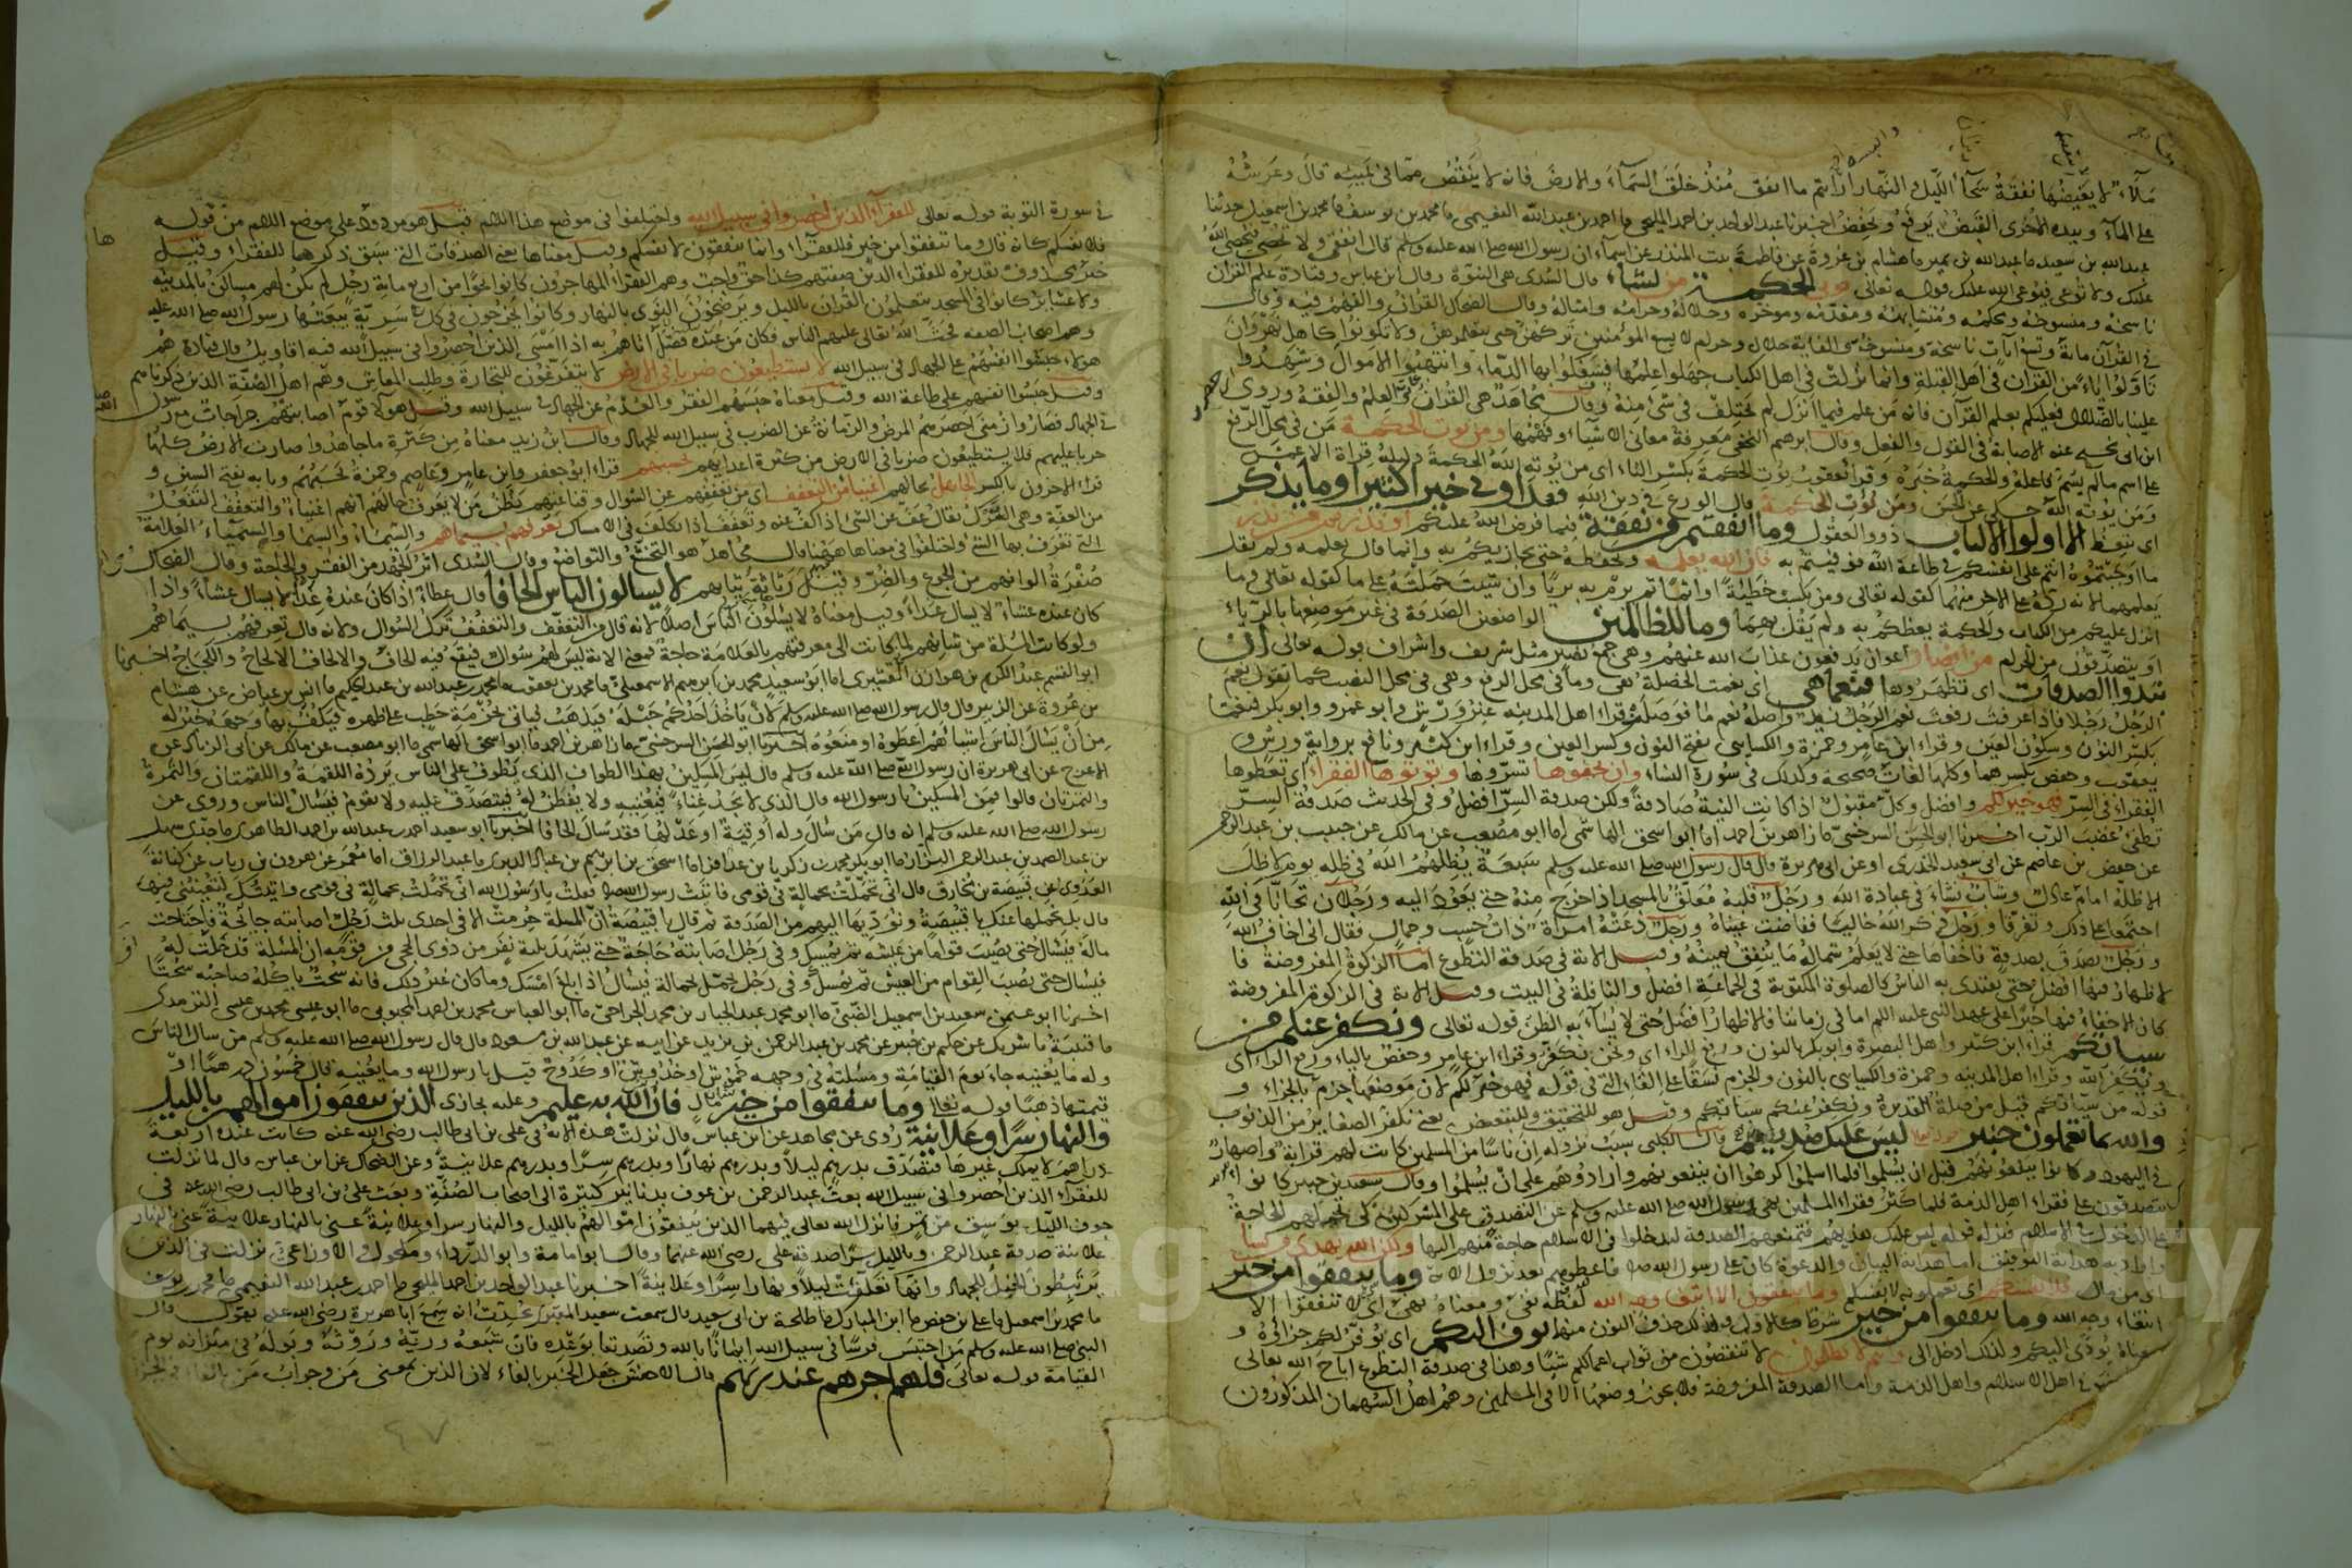 ملآى لا يغيضها نفقة سحاء الليل والنهار أرأيتم ما انفق منذ خلق السماء والارض فانه لا ينقص مما في يمينه قال وعرشه
على الماء وبيده الاخرى القبض يرفع ويخفض اخبرنا عبد الواحد بن احمد المليحي ما احمد بن عبد الله النعيمي ما محمد بن يوسف ما محمد بن اسمعيل حدثنا
عبد الله بن سعيد ما عبد الله بن نمير ما هشام بن عروة عن فاطمة بنت المنذر عن اسماء ان رسول الله صلى الله عليه وسلم قال انفقي ولا تحصي فيحصي الله
عليك ولا توعي فيوعي الله عليك قوله تعالى يوتي الحكمة من يشاء قال السدى هى النبوة وقال ابن عباس وقتادة علم القرآن
ناسخه ومنسوخه ومحكمه ومتشابهه ومقدمه وموخره وحلاله وحرامه وامثاله وقال الضحاك القرآن والفهم فيه وقال
في القرآن مائة وتسع آيات ناسخة ومنسوخة الف آية حلال وحرام لا يسع المؤمنين تركهن حتى يتعلموهن ولا تكونوا كاهل نهروان
تأولوا آيا من القرآن في اهل القبلة وانما نزلت في اهل الكتاب جهلوا علمها فسفكوا بها الدماء وانتهبوا الاموال وشهدوا
علينا بالضلال فعليكم بعلم القرآن فانه من علم فيما انزل لم يختلف في شئ منه وقال مجاهد هى القرآن والعلم والفقه وروى
ابن ابى نجيح عنه الاصابة في القول والفعل وقال ابرهيم النخعي معرفة معاني الاشياء وفهمها ومن يوت الحكمة من في محل الرفع
على اسم ما لم يسم فاعله والحكمة خبره وقرأ يعقوب يوت الحكمة بكسر التاء اى من يوته الله الحكمة دليله قراة الاعمش
ومن يوته الله حكي عن الحسن ومن يوت الحكمة قال الورع في دين الله فقد اوتي خيرا كثيرا وما يذكر
اى يتعظ الا اولوا الالباب ذوو العقول وما انفقتم من نفقة فيما فرض الله عليكم او نذرتم من نذر
ما اوجبتموه انتم على انفسكم في طاعة الله فوفيتم به فان الله يعلمه ويحفظه حتى يجازيكم به وانما قال يعلمه ولم يقل
يعلمهما لانه رده على الآخر منهما كقوله تعالى ومن يكسب خطيئة او اثما ثم يرم به بريا وان شئت حملته على ما كقوله تعالى وما
انزل عليكم من الكتاب والحكمة يعظكم به ولم يقل بهما وما للظالمين الواضعين الصدقة في غير موضعها بالرياء
او يتصدقون من الحرام من انصار اعوان يدفعون عذاب الله عنهم وهى جمع نصير مثل شريف واشراف قوله تعالى ان
تبدوا الصدقات اى تظهروها فنعما هي اى نعمت الخصلة هي وما في محل الرفع وهى في محل النصب كما تقول نعم
الرجل رجلا فاذا عرفت رفعت نعم الرجل زيد واصله نعم ما فوصلت قرأ اهل المدينة غير ورش وابو عمرو وابو بكر فنعما
بكسر النون وسكون العين وقراء ابن عامر وحمزة والكسائي بفتح النون وكسر العين وقراء ابن كثير ونافع برواية ورش و
يعقوب وحفص بكسرهما وكلها لغات صحيحة وكذلك في سورة النساء وان تخفوها تسروها وتؤتوها الفقراء اى تعطوها
الفقراء في السر فهو خير لكم وافضل وكل مقبول اذا كانت النية صادقة ولكن صدقة السر افضل وفي الحديث صدقة السر
تطفئ غضب الرب اخبرنا ابو الحسن السرخسي ما زاهر بن احمد اما ابو اسحق الهاشمي اما ابو مصعب عن مالك عن حبيب بن عبد الرحمن
عن حفص بن عاصم عن ابي سعيد الخدري او عن ابي هريرة قال قال رسول الله صلى الله عليه وسلم سبعة يظلهم الله في ظله يوم لا ظل
الا ظله امام عادل وشاب نشاء في عبادة الله ورجل قلبه معلق بالمسجد اذا خرج منه حتى يعود اليه ورجلان تحابا في الله
اجتمعا على ذلك وتفرقا ورجل ذكر الله خاليا ففاضت عيناه ورجل دعته امراة ذات حسب وجمال فقال اني اخاف الله
ورجل تصدق بصدقة فاخفاها حتى لا يعلم شماله ما ينفق يمينه وقيل الآية في صدقة التطوع اما الزكوة المفروضة فا
لاظهار فيها افضل حتى يقتدى به الناس كالصلوة المكتوبة في الجماعة افضل والنافلة في البيت وقيل الآية في الزكوة المفروضة
كان الاخفاء فيها خيرا على عهد النبي عليه السلام اما في زماننا فالاظهار افضل حتى لا يساء به الظن قوله تعالى ونكفر عنكم من
سياتكم قراء ابن كثير واهل البصرة وابو بكر بالنون ورفع الراء اى ونحن نكفر وقراء ابن عامر وحفص بالياء ورفع الراء اى
ويكفر الله وقراء اهل المدينة وحمزة والكسائي بالنون والجزم نسقا على الفاء التي في قوله فهو خير لكم لان موضعها جزم بالجزاء و
قوله من سيآتكم قيل من صلة تقديره ونكفر عنكم سياتكم وقيل هو للتحقيق وللتبعيض يعني نكفر الصغائر من الذنوب
والله بما تعملون خبير ليس عليك هديهم قال الكلبي سبب نزوله ان ناسا من المسلمين كانت لهم قرابة واصهار
في اليهود وكانوا ينفعونهم قبل ان يسلموا فلما اسلموا كرهوا ان ينفعوهم وارادوهم على ان يسلموا وقال سعيد بن جبير كانوا
يتصدقون على فقراء اهل الذمة فلما كثر فقراء المسلمين نهى رسول الله صلى الله عليه وسلم عن التصدق على المشركين كي تحملهم الحاجة
على الدخول في الاسلام فنزل قوله ليس عليك هديهم فتمنعهم الصدقة ليدخلوا في الاسلام حاجة منهم اليها ولكن الله يهدي من يشاء
واراد به هداية التوفيق اما هداية البيان والدعوة كان على رسول الله فاعطوهم بعد نزول الآية وما تنفقوا من خير
اى من مال فلانفسكم اى تعملونه لانفسكم وما تنفقون الا ابتغاء وجه الله لفظه نفي ومعناه نهى اى لا تنفقوا الا
ابتغاء وجه الله وما تنفقوا من خير شرط كالاول ولذلك حذف النون منهما يوف اليكم اى يوفر لكم جزاؤه و
معناه يؤدى اليكم ولذلك ادخل الى وانتم لا تظلمون لا تنقصون من ثواب اعمالكم شيئا وهذا في صدقة التطوع اباح الله تعالى
في اهل الاسلام واهل الذمة واما الصدقة المفروضة فلا يجوز وضعها الا في المسلمين وهم اهل السهمان المذكورون
في سورة التوبة قوله تعالى للفقراء الذين احصروا في سبيل الله واختلفوا في موضع هذا اللام قيل هو مردود على موضع اللام من قوله
فلانفسكم كانه قال وما تنفقوا من خير فللفقراء وانما تنفقون لانفسكم وقيل معناها يعني الصدقات التي سبق ذكرها للفقراء وقيل
خبر محذوف تقديره للفقراء الذين صفتهم كذا حق واجب وهم الفقراء المهاجرون كانوا نحوا من اربع مائة رجل لم يكن لهم مساكن بالمدينة
ولا عشائر كانوا في المسجد يتعلمون القرآن بالليل ويرضخون النوى بالنهار وكانوا يخرجون في كل سرية يبعثها رسول الله صلى الله عليه
وهم اصحاب الصفة فحث الله تعالى عليهم الناس فكان من عنده فضل اتاهم به اذا امسى الذين احصروا في سبيل الله فيه اقاويل قال قتادة هم
هولاء حبسوا انفسهم على الجهاد في سبيل الله لا يستطيعون ضربا في الارض لا يتفرغون للتجارة وطلب المعاش وهم اهل الصفة الذين ذكرناهم
وقيل حبسوا انفسهم على طاعة الله وقيل معناه حبسهم الفقر والعدم عن الجهاد في سبيل الله وقيل هولاء قوم اصابتهم جراحات مع رسول
في الجهاد فصاروا زمنى احصرهم المرض والزمانة عن الضرب في سبيل الله للجهاد وقال ابن زيد معناه من كثرة ما جاهدوا صارت الارض كلها
حربا عليهم فلا يستطيعون ضربا في الارض من كثرة اعدائهم يحسبهم قراء ابو جعفر وابن عامر وعاصم وحمزة يحسبهم وبابه بفتح السين و
قراء الآخرون بالكسر الجاهل بحالهم اغنياء من التعفف اى من تعففهم عن السؤال وقناعتهم يظن من لا يعرف حالهم انهم اغنياء والتعفف التفعل
من العفة وهى الترك يقال عف عن الشئ اذا كف عنه وتعفف اذا تكلف في الامساك تعرفهم بسيماهم والسيماء والسيما والسيمياء العلامة
التي تعرف بها الشئ واختلفوا في معناها ههنا قال مجاهد هو التخشع والتواضع وقال السدى اثر الجهد من الفقر والحاجة وقال الضحاك
صفرة الوانهم من الجوع والضر وقيل رثاثة ثيابهم لا يسالون الناس الحافا قال عطاء اذا كان عنده غداء لا يسال عشاء واذا
كان عنده عشاء لا يسال غداء وقيل معناه لا يسئلون الناس اصلا لانه قال من التعفف والتعفف ترك السؤال ولانه قال تعرفهم بسيماهم
ولو كانت المسئلة من شانهم لما كانت الى معرفتهم بالعلامة حاجة فمعنى الآية ليس لهم سؤال فيقع فيه الحاف والالحاف الالحاح واللجاج اخبرنا
ابو القسم عبد الكريم بن هوازن القشيري اما ابو سعيد محمد بن ابرهيم الاسمعيلي ما محمد بن يعقوب ما محمد بن عبد الله بن عبد الحكيم ما انس بن عياض عن هشام
بن عروة عن الزبير قال قال رسول الله صلى الله عليه وسلم لان ياخذ احدكم حبله فيذهب فياتي بحزمة حطب على ظهره فيكف بها وجهه خير له
من ان يسال الناس اشياءهم اعطوه او منعوه اخبرنا ابو الحسن السرخسي ما زاهر بن احمد ما ابو اسحق الهاشمي ما ابو مصعب عن مالك عن ابي الزناد عن
الاعرج عن ابي هريرة ان رسول الله صلى الله عليه وسلم قال ليس المسكين بهذا الطواف الذي يطوف على الناس يرده اللقمة واللقمتان والتمرة
والتمرتان قالوا فمن المسكين يا رسول الله قال الذي لا يجد غناء فيغنيه ولا يفطن له فيتصدق عليه ولا يقوم فيسال الناس وروى عن
رسول الله صلى الله عليه وسلم انه قال من سال وله اوقية او عدلها فقد سال الحافا اخبرنا ابو سعيد احمد بن عبد الله بن احمد الطاهري ما جدي سهل
بن عبد الصمد بن عبد الرحمن البزاز ما ابو بكر محمد بن زكريا بن عذافر اما اسحق بن ابرهيم بن عباد الدبري ما عبد الرزاق اما معمر عن هرون بن رياب عن كنانة
العدوي عن قبيصة بن مخارق قال اني تحملت بحمالة في قومي فاتيت رسول الله فقلت يا رسول الله اني تحملت بحمالة في قومي واتيتك لتعينني فيها
قال بل نحملها عنك يا قبيصة ونؤديها اليهم من الصدقة ثم قال يا قبيصة ان المسئلة حرمت الا في احدى ثلث رجل اصابته جائحة فاجتاحت
ماله فيسال حتى يصيب قواما من عيشه ثم يمسك وفي رجل اصابته حاجة حتى يشهد ثلثة نفر من ذوى الحجى من قومه ان المسئلة قد حلت له
فيسال حتى يصيب القوام من العيش ثم يمسك وفي رجل تحمل بحمالة فيسال اذا بلغ امسك وما كان غير ذلك فانه سحت ياكله صاحبه سحتا
اخبرنا ابو عثمن سعيد بن اسمعيل الضبي ما ابو محمد عبد الجبار بن محمد الجراحي ما ابو العباس محمد بن احمد المحبوبي ما ابو عيسى محمد بن عيسى الترمذي
ما قتيبة ما شريك عن حكيم بن جبير عن محمد بن عبد الرحمن بن يزيد عن ابيه عن عبد الله بن مسعود قال قال رسول الله صلى الله عليه وسلم من سال الناس
وله ما يغنيه جاء يوم القيامة ومسئلته في وجهه خموش او خدوش او كدوح قيل يا رسول الله وما يغنيه قال خمسون درهما او
قيمتها ذهبا قوله تعالى وما تنفقوا من خير مال فان الله به عليم وعليه يجازي الذين ينفقون اموالهم بالليل
والنهار سرا وعلانية روى عن مجاهد عن ابن عباس قال نزلت هذه الآية في علي بن ابي طالب رضى الله عنه كانت عنده اربعة
دراهم لا يملك غيرها فتصدق بدرهم ليلا وبدرهم نهارا وبدرهم سرا وبدرهم علانية وعن الضحاك عن ابن عباس قال لما نزلت
للفقراء الذين احصروا في سبيل الله بعث عبد الرحمن بن عوف بدنانير كثيرة الى اصحاب الصفة وبعث علي بن ابي طالب رضى الله عنه في
جوف الليل بوسق من تمر فانزل الله تعالى فيهما الذين ينفقون اموالهم بالليل والنهار سرا وعلانية عنى بالنهار علانية
علانية صدقة عبد الرحمن وبالليل سرا صدقة علي رضى الله عنهما وقال ابو امامة وابو الدرداء ومكحول والاوزاعي نزلت في الذين
يرتبطون الخيل للجهاد وانها تعلف ليلا ونهارا سرا وعلانية اخبرنا عبد الواحد بن احمد المليحي ما احمد بن عبد الله النعيمي ما محمد بن يوسف
ما محمد بن اسمعيل ما علي بن حفص ما ابن المبارك ما طلحة بن ابي سعيد قال سمعت سعيد المقبري يحدث انه سمع ابا هريرة رضى الله عنه يقول قال
النبي صلى الله عليه وسلم من احتبس فرسا في سبيل الله ايمانا بالله وتصديقا بوعده فان شبعه وريه وروثه وبوله في ميزانه يوم
القيامة قوله تعالى فلهم اجرهم عند ربهم قال الاخفش جعل الخبر بالفاء لان الذين بمعنى من وجواب من بالفاء
٤٧